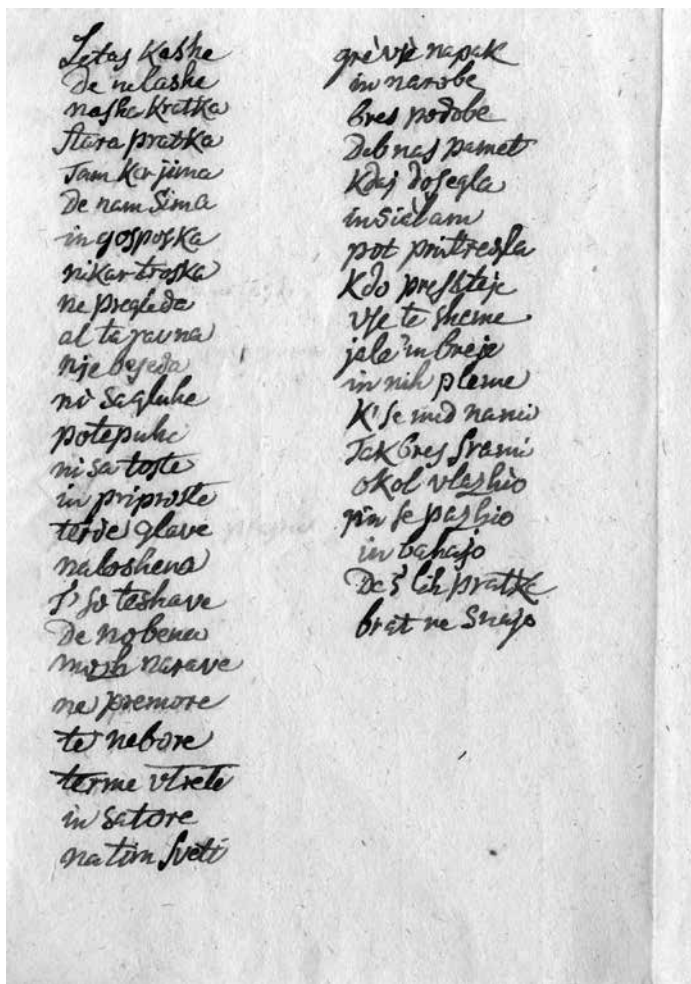 Letas kashe
De nelashe
nasha kratka
stara pratka
Tam kar jima
De nam Sima
in gosposka
nikar troska
ne pregleda
al ta ravna
nje beseda
ni sagluhe
potepuhe
ni sa toste
in priproste
terde glave
naloshena
s' so teshave
De nobena
mozh narave
ne premore
te nebore
terme vtrete
in satore
na tim sveti
grè vse napak
in narobe
bres podobe
Deb nas pamet
kdaj dosegla
in
pot pritresla
kdo preshteje
vse te sheme
jale in breje
in nih pleme
K' se med nami
Tak bres srami
okol vlazhio
in se pazhio
in bahajo
De s' lih pratke
brat ne snajo